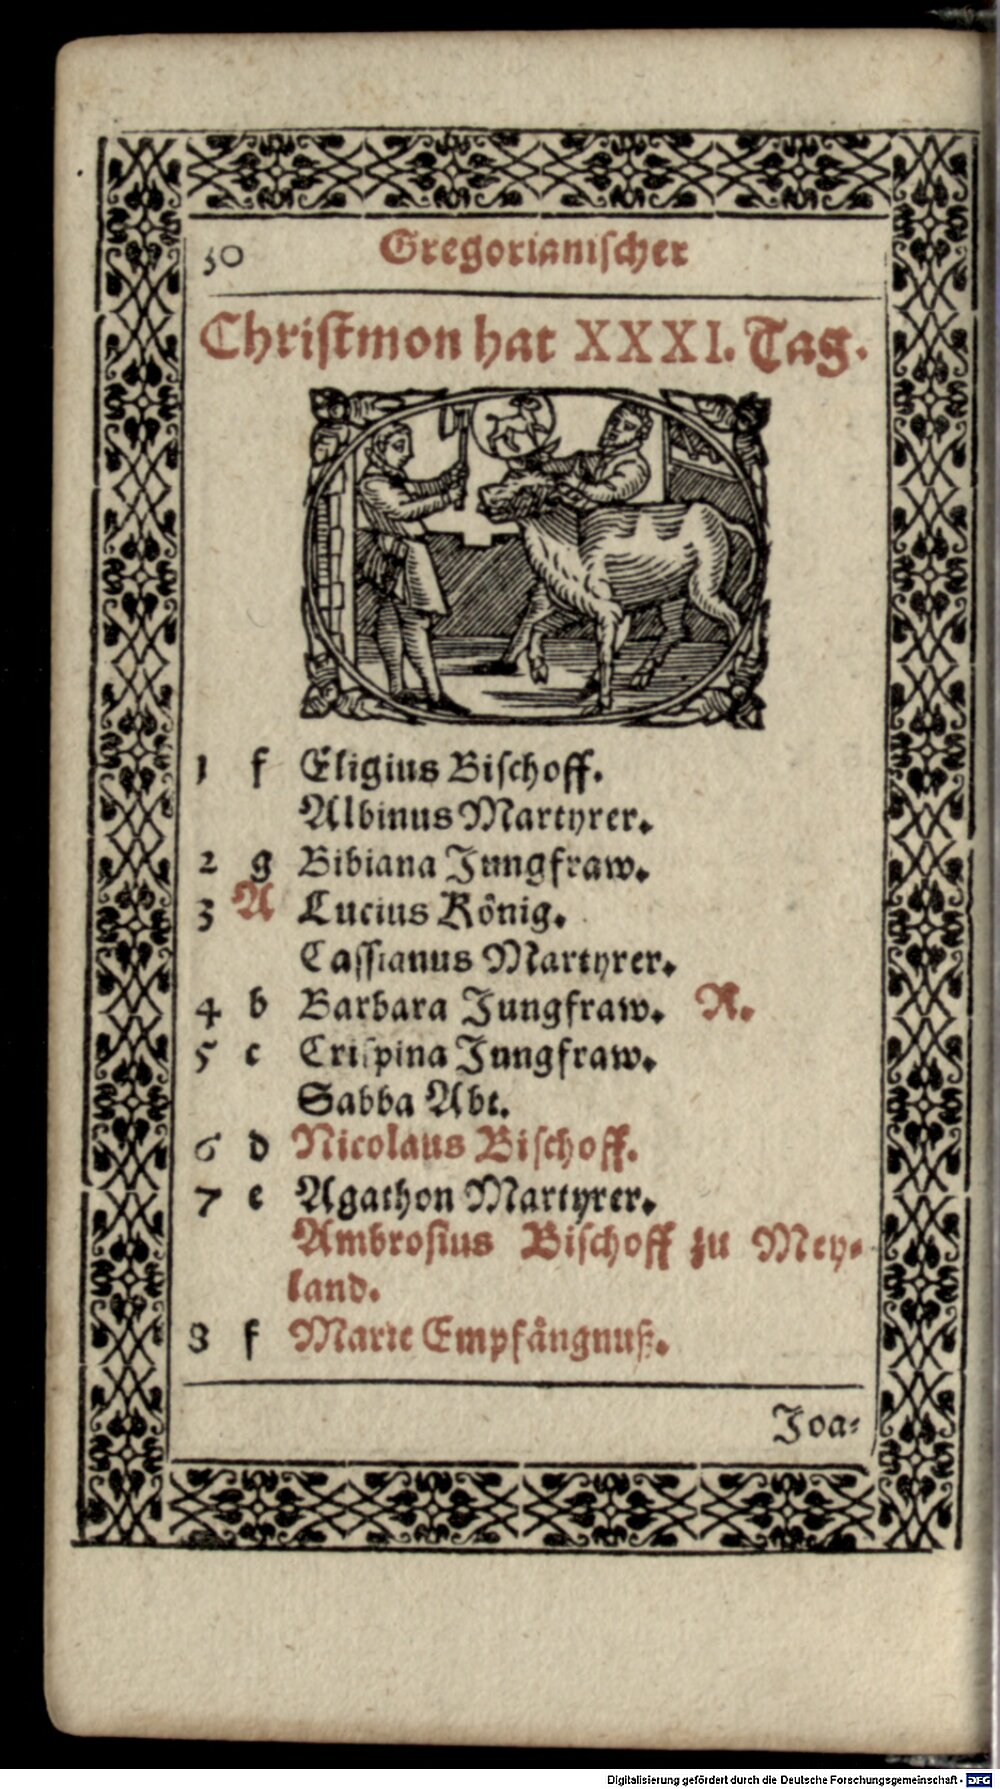 50 Gregorianiſcher
Chriſtmon hat XXXI. Tag.
1 f Eligius Biſchoff.
Albinus Martyrer.
2 g Bibiana Jungfraw.
3 A Lucius Koͤnig.
Caſſianus Martyrer.
4 b Barbara Jungfraw. R.
5 c Criſpina Jungfraw.
Sabba Abt.
6 d Nicolaus Biſchoff.
7 e Agathon Martyrer.
Ambroſius Biſchoff zu Mey⸗
land.
8 f Marie Empfaͤngnuß.
Joa⸗
Digitalisierung gefördert durch die Deutsche Forschungsgemeinschaft - DFG